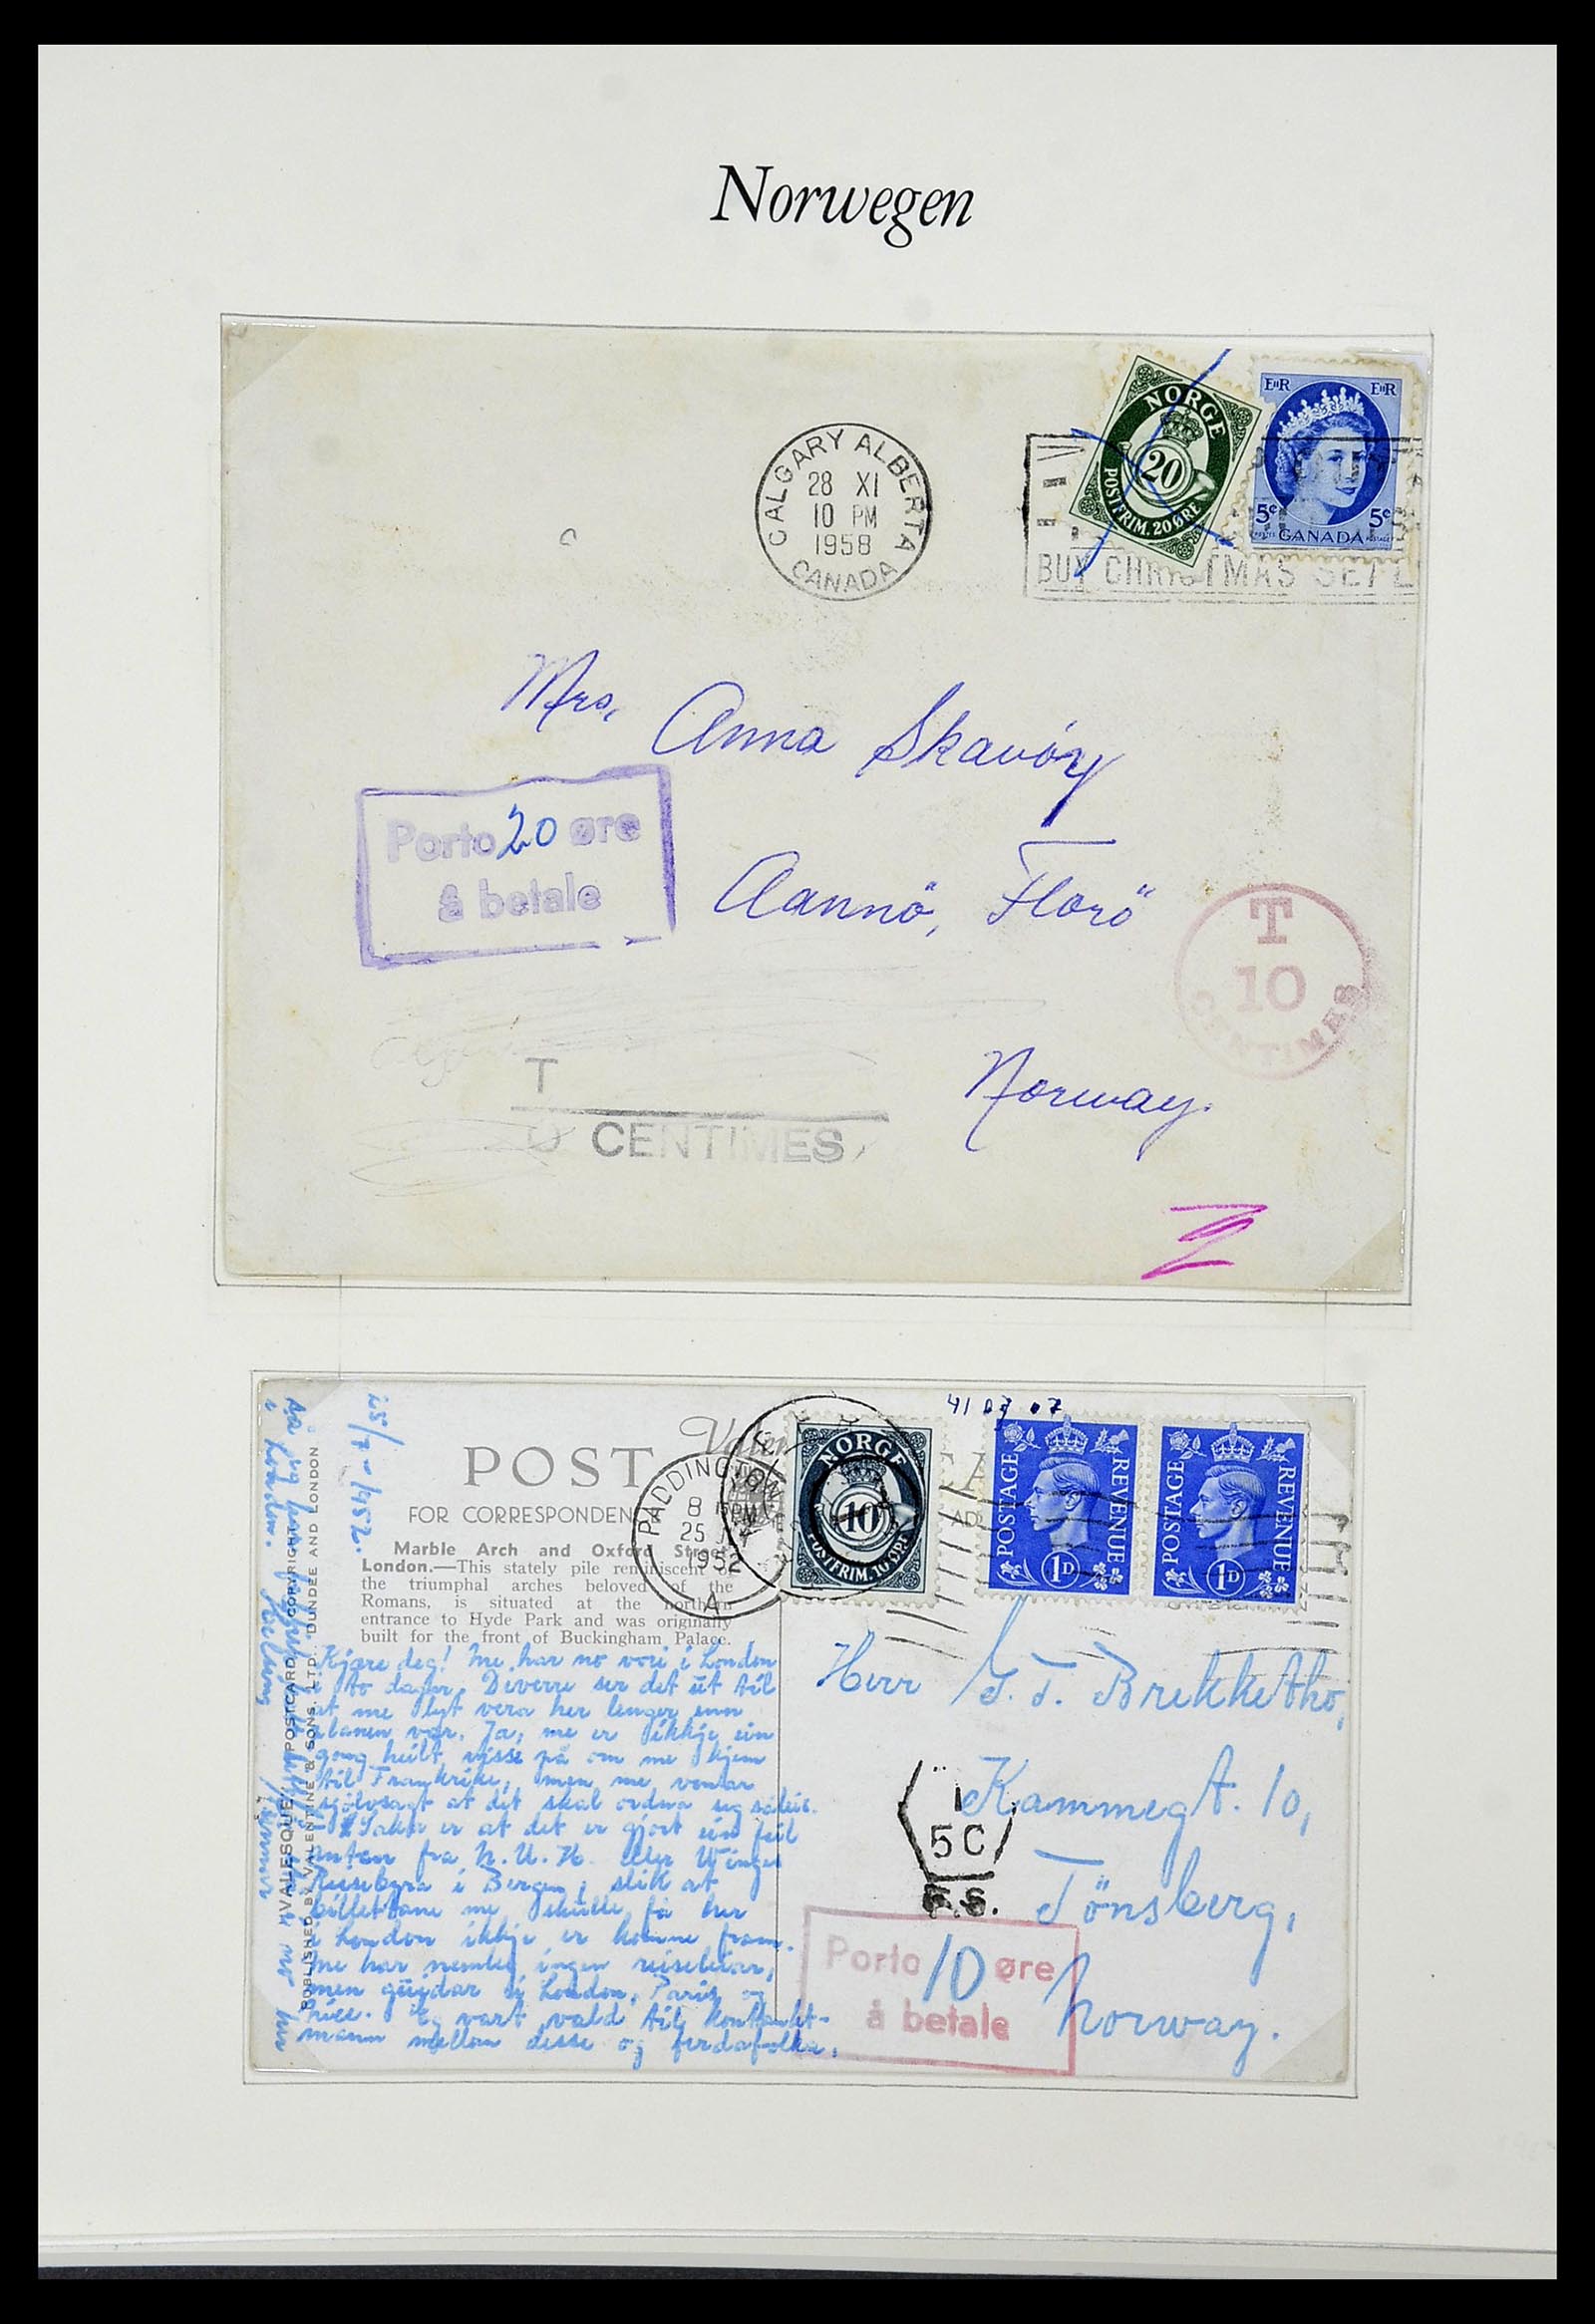 Norwegen
CALGARY ALBERTA
28 XI
10 PM
1958
CANADA
NORGE
20
POSTFRIM. 20 ØRE
EIIR EIIR
5¢ 5¢
CANADA
BUY CHRISTMAS SEAL
Mrs. Anna Skavöy
Porto 20 øre
å betale
Aannö, Florö
T
10
CENTIMES
Norway.
T
CENTIMES
25/7-1952.
41 07 07
POST
FOR CORRESPONDENCE
PADDINGTON
8 15 PM
25
1952
A
NORGE
10
POSTFRIM. 10 ØRE
POSTAGE REVENUE
1D
POSTAGE REVENUE
1D
Marble Arch and Oxford Street,
London.—This stately pile reminiscent of
the triumphal arches beloved of the
Romans, is situated at the northern
entrance to Hyde Park and was originally
built for the front of Buckingham Palace.
Kjære deg! Me har no vori i London
i to dagar. Diverre ser det ut til
at me lyt vera her lenger enn
planen var. Ja, me er ikkje ein
gong heilt visse på om me kjem
til Frankrike, men me ventar
sjølvsagt at det skal ordna seg såleis.
Saka er at det er gjort ein feil
anten fra N.U.H. eller Winges
Reisebyrå i Bergen, slik at
billettane me skulle få her
i London ikkje er komne fram.
Me har nemleg ingen reiseleiar,
men guidar i London, Paris og
Nice. Eg vart vald til kontakt-
mann mellom desse og ferdafolka.
i London. Helsing
"VALESQUE" POSTCARD COPYRIGHT
PUBLISHED BY VALENTINE & SONS, LTD. DUNDEE AND LONDON
Herr
Kammegt. 10,
Tönsberg,
Norway.
1
5C
F.S.
Porto 10 øre
å betale